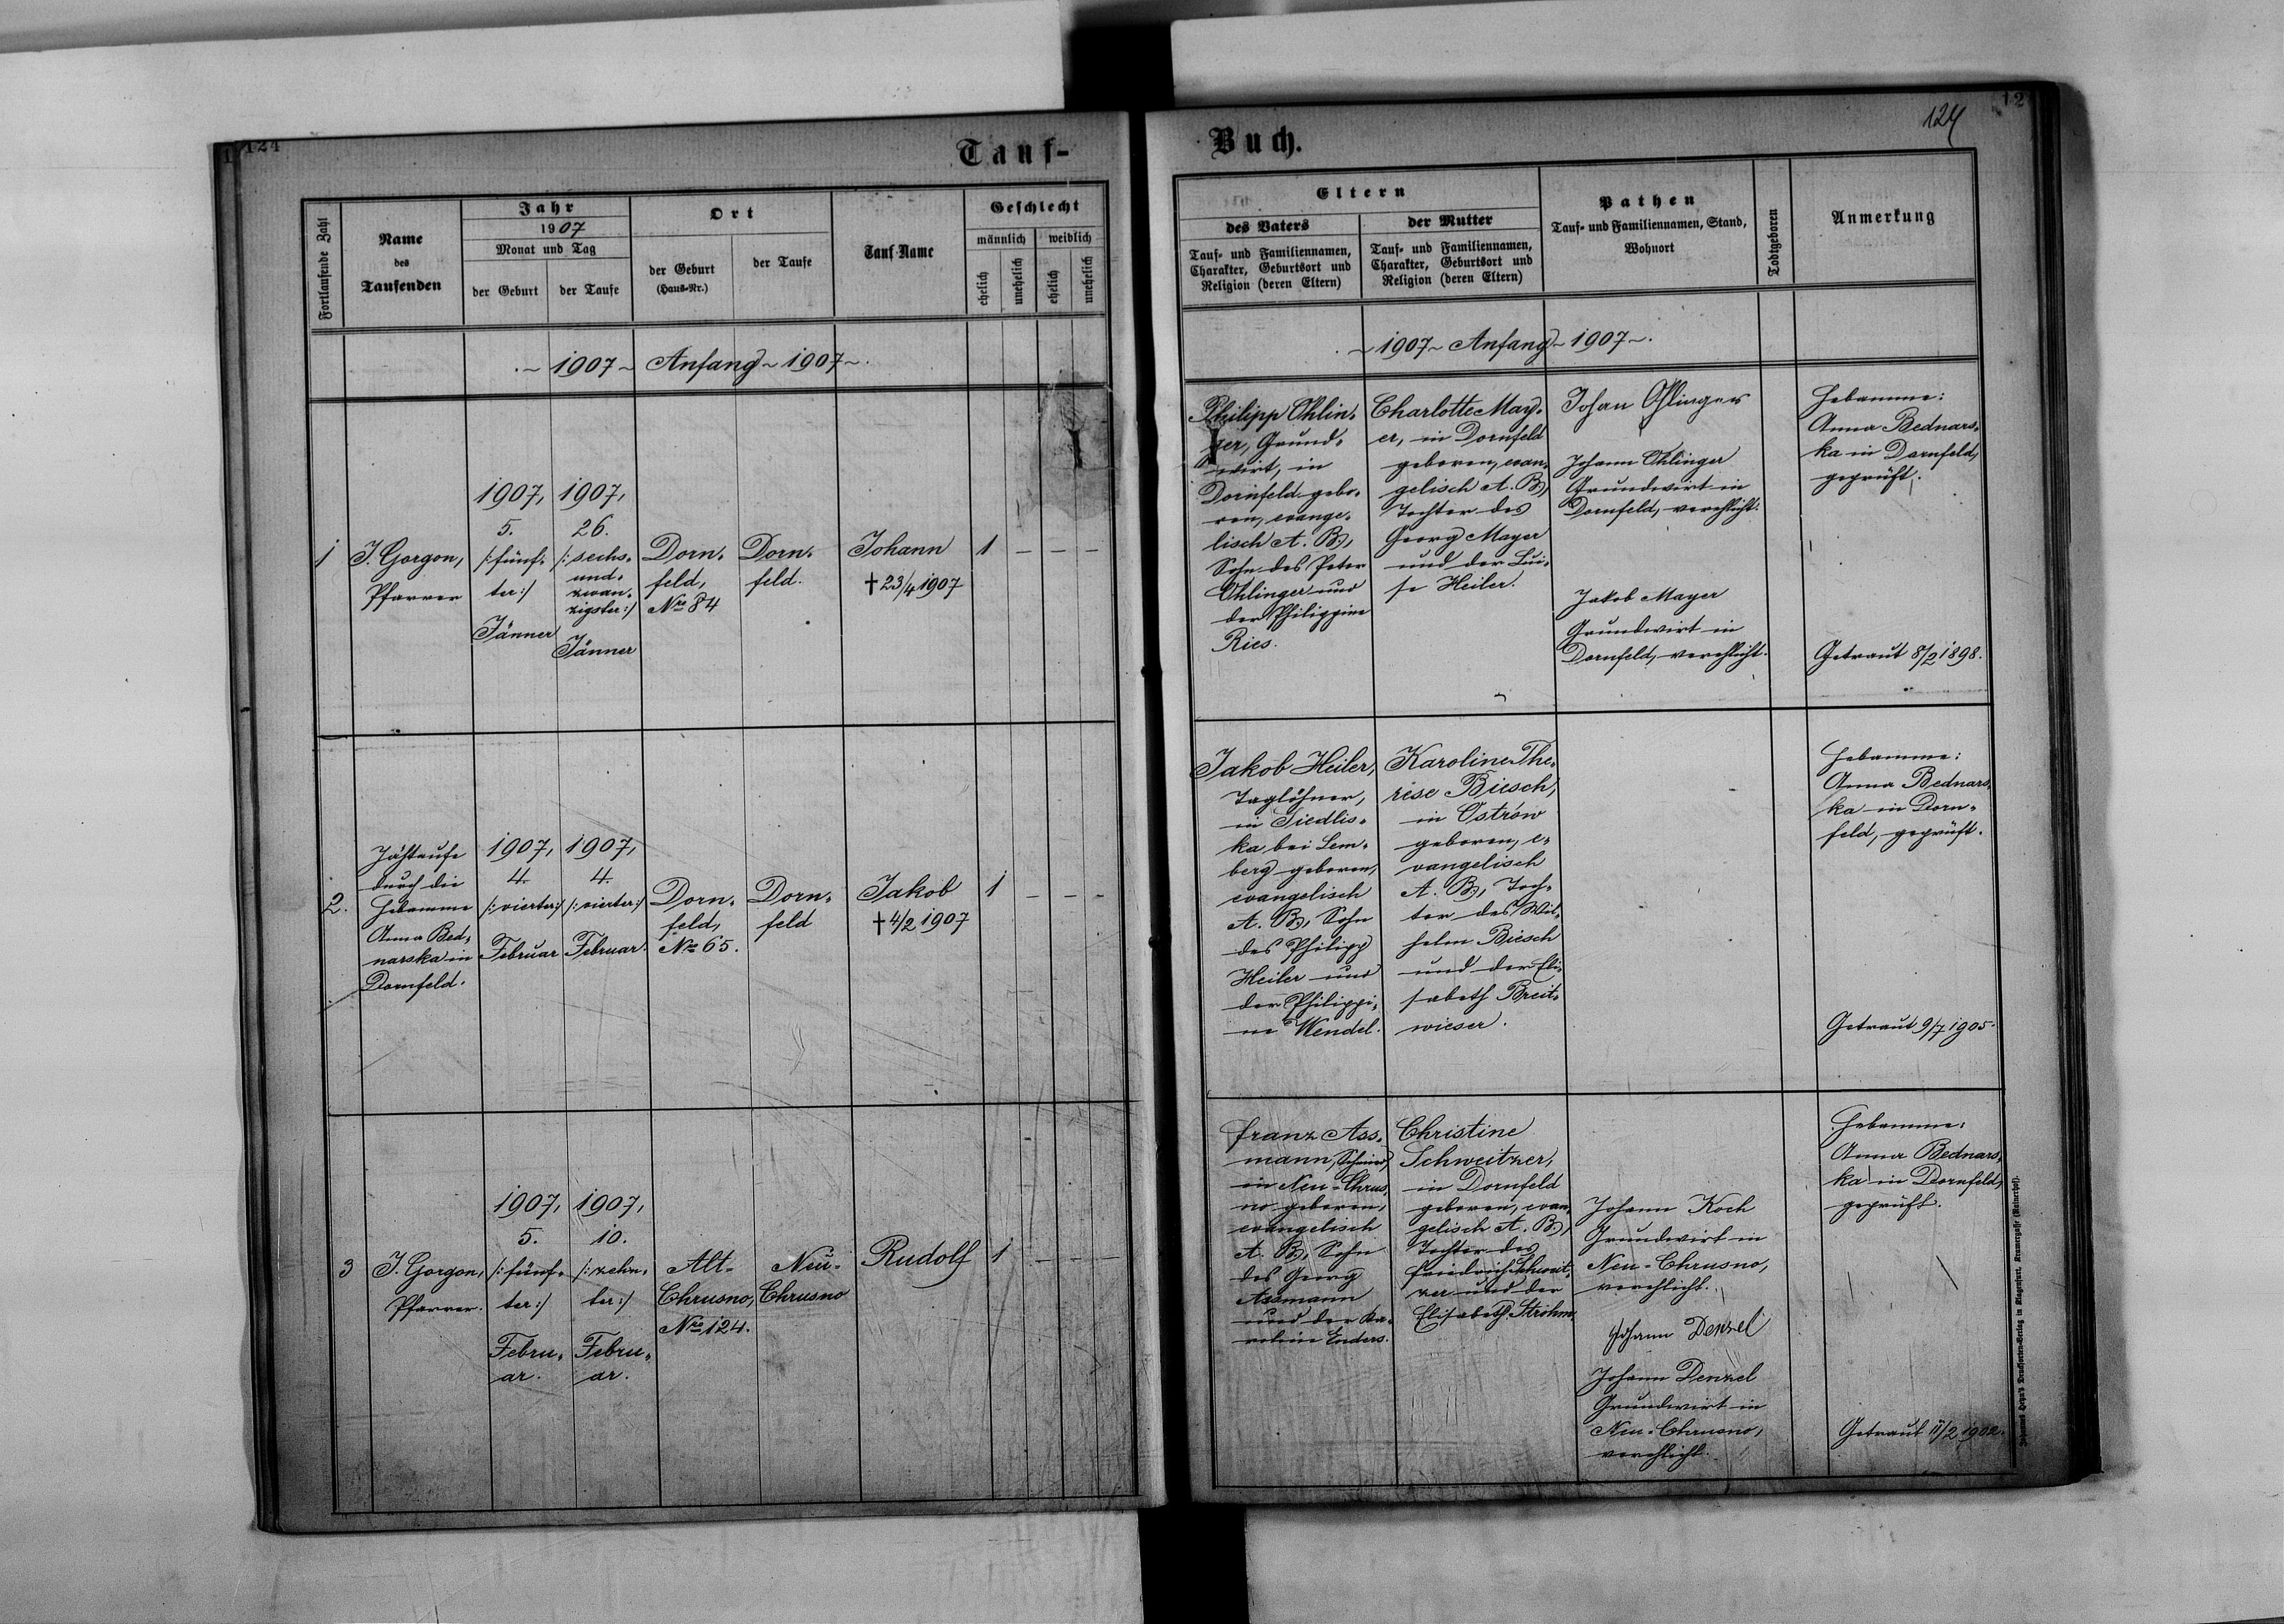 124
Tauf-
Fortlaufende Zahl
Name
des
Taufenden
Jahr
1907
Monat und Tag
der Geburt
der Taufe
Ort
der Geburt
(Haus-Nr.)
der Taufe
Tauf-Name
Geschlecht
männlich
weiblich
ehelich
unehelich
ehelich
unehelich
.~ 1907 ~ Anfang ~ 1907 ~.
1
J. Gorgon,
Pfarrer
1907,
5.
/:fünf-
ter:/
Jänner
1907,
26.
/:sechs-
und-
zwan-
zigster:/
Jänner
Dorn-
feld,
Nro 84
Dorn-
feld.
Johann
† 23/4 1907
1 – – –
2.
Jähtaufe
durch die
Hebamme
Anna Bed-
narska in
Dornfeld.
1907,
4.
/:vierter:/
Februar
1907,
4.
/:vierter:/
Februar.
Dorn-
feld,
Nro 65.
Dorn-
feld
Jakob
† 4/2 1907
1 – – –
3
J. Gorgon,
Pfarrer.
1907,
5.
/:fünf-
ter:/
Febru-
ar.
1907,
10.
/:zehn-
ter:/
Febru-
ar.
Alt-
Chrusno,
Nro 124.
Neu-
Chrusno
Rudolf
1 – – –
Buch.
124
12
Eltern
des Vaters
Tauf- und Familiennamen,
Charakter, Geburtsort und
Religion (deren Eltern)
der Mutter
Tauf- und Familiennamen,
Charakter, Geburtsort und
Religion (deren Eltern)
Pathen
Tauf- und Familiennamen, Stand,
Wohnort
Todtgeboren
Anmerkung
.~ 1907 ~ Anfang ~ 1907 ~.
Philipp Ohlin-
ger, Grund-
wirt, in
Dornfeld gebo-
ren, evange-
lisch A. B.,
Sohn des Peter
Ohlinger und
der Philippine
Ries.
Charlotte May-
er, in Dornfeld
geboren, evan-
gelisch A. B.,
Tochter des
Georg Mayer
und der Lui-
se Heiler.
Johan Ohlinger
Johann Ohlinger
Grundwirt in
Dornfeld, verehlicht.
Jakob Mayer
Grundwirt in
Dornfeld, verehlicht.
Hebamme:
Anna Bednars-
ka in Dornfeld,
geprüft.
Getraut 8/2 1898.
Jakob Heiler,
Taglöhner,
in Siedlis-
ka bei Lem-
berg geboren,
evangelisch
A. B., Sohn
des Philipp
Heiler und
der Philippi-
ne Wendel.
Karoline The-
rese Biesch,
in Ostrów
geboren, e-
vangelisch
A. B., Toch-
ter des Wil-
helm Biesch
und der Eli-
sabeth Breit-
wieser.
Hebamme:
Anna Bednars-
ka in Dorn-
feld, geprüft.
Getraut 9/7 1905.
Franz Ass-
mann, Schmied,
in Neu-Chrus-
no geboren,
evangelisch
A. B., Sohn
des Georg
Assmann
und der Ka-
roline Enders.
Christine
Schweitzer,
in Dornfeld
geboren, evan-
gelisch A. B.,
Tochter des
Friedrich Schweit-
zer und der
Elisabeth Strohm.
Johann Koch
Grundwirt in
Neu-Chrusno,
verehlicht.
Johann Denzel
Johann Denzel
Grundwirt in
Neu-Chrusno,
verehlicht.
Hebamme:
Anna Bednars-
ka in Dornfeld,
geprüft.
Getraut 11/2 1902.